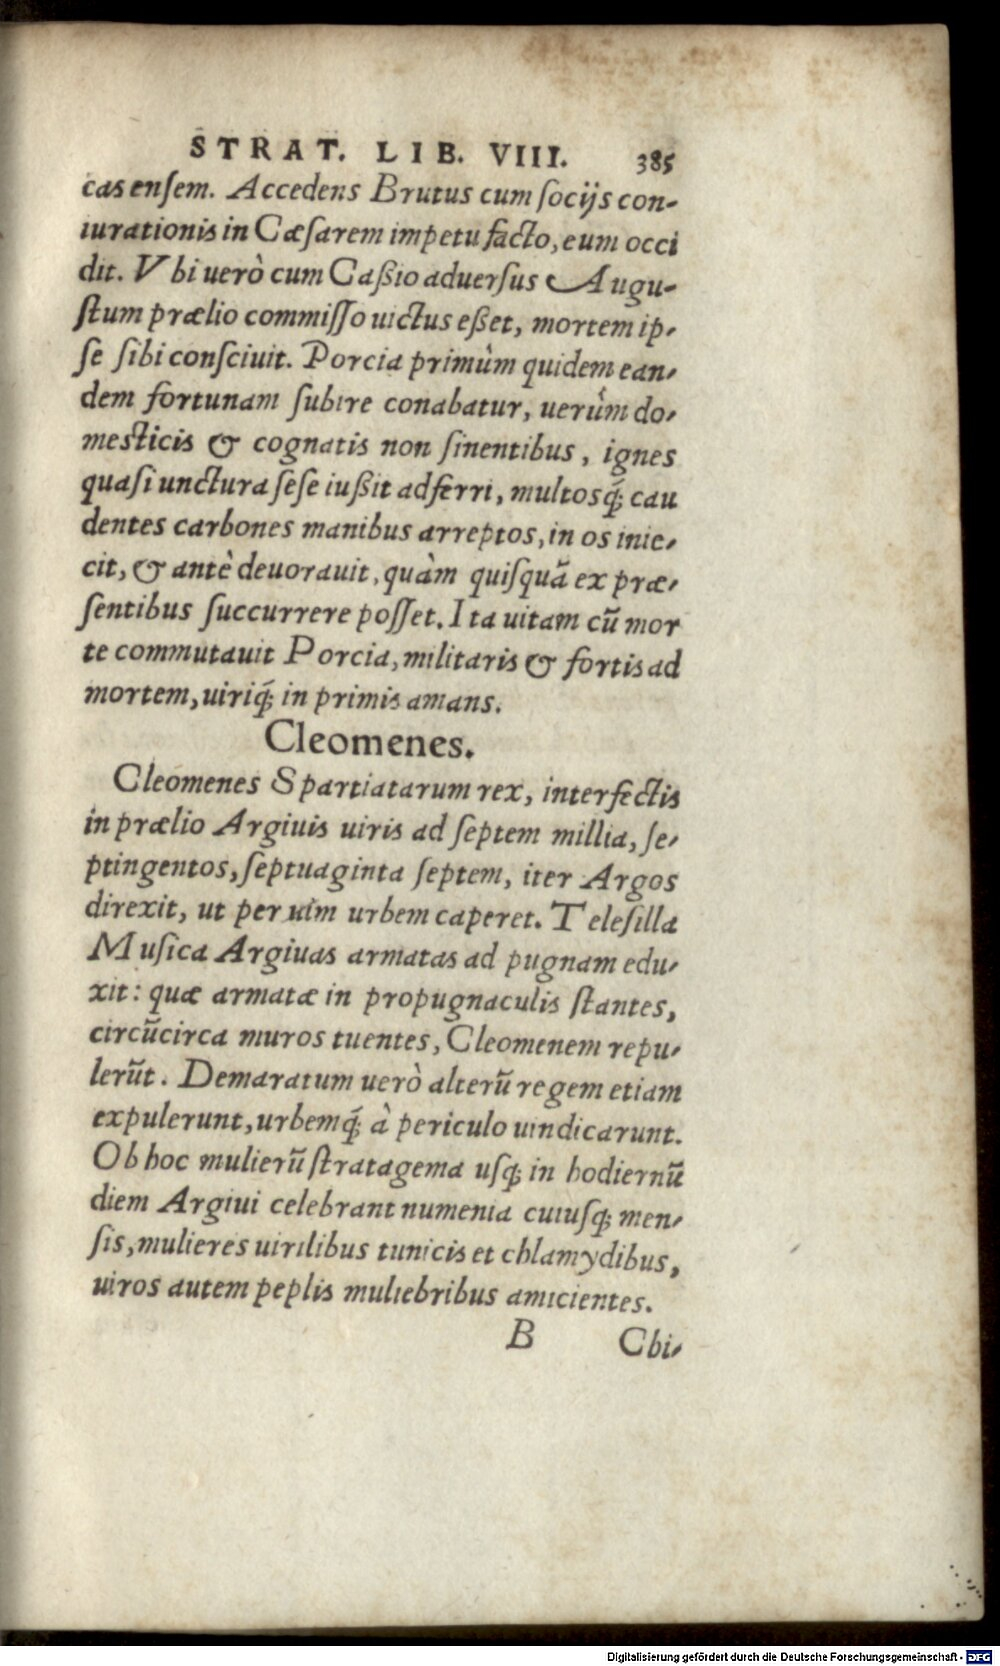 STRAT. LIB. VIII. 385
cas ensem. Accedens Brutus cum socijs con-
iurationis in Cæsarem impetu facto, eum occi
dit. Vbi uerò cum Caßio aduersus Augu-
stum prælio commisso uictus eßet, mortem ip-
se sibi consciuit. Porcia primùm quidem ean-
dem fortunam subire conabatur, uerùm do-
mesticis & cognatis non sinentibus, ignes
quasi unctura sese iußit adferri, multosq́; cau
dentes carbones manibus arreptos, in os inie-
cit, & antè deuorauit, quàm quisquã ex præ-
sentibus succurrere posset. Ita uitam cũ mor
te commutauit Porcia, militaris & fortis ad
mortem, uiriq́; in primis amans.
Cleomenes.
Cleomenes Spartiatarum rex, interfectis
in prælio Argiuis uiris ad septem millia, se-
ptingentos, septuaginta septem, iter Argos
direxit, ut per uim urbem caperet. Telesilla
Musica Argiuas armatas ad pugnam edu-
xit: quæ armatæ in propugnaculis stantes,
circũcirca muros tuentes, Cleomenem repu-
lerũt. Demaratum uerò alterũ regem etiam
expulerunt, urbemq́; à periculo uindicarunt.
Ob hoc mulierũ stratagema usq; in hodiernũ
diem Argiui celebrant numenia cuiusq; men-
sis, mulieres uirilibus tunicis et chlamydibus,
uiros autem peplis muliebribus amicientes.
B Chi-
Digitalisierung gefördert durch die Deutsche Forschungsgemeinschaft - DFG